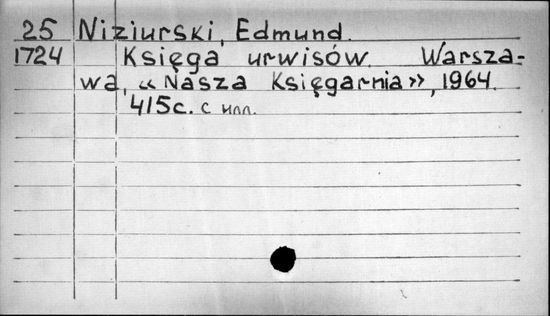 25 Niziurski, Edmund.
1724 Księga urwisów. Warsza-
wa, «Nasza Księgarnia», 1964.
415с. с илл.